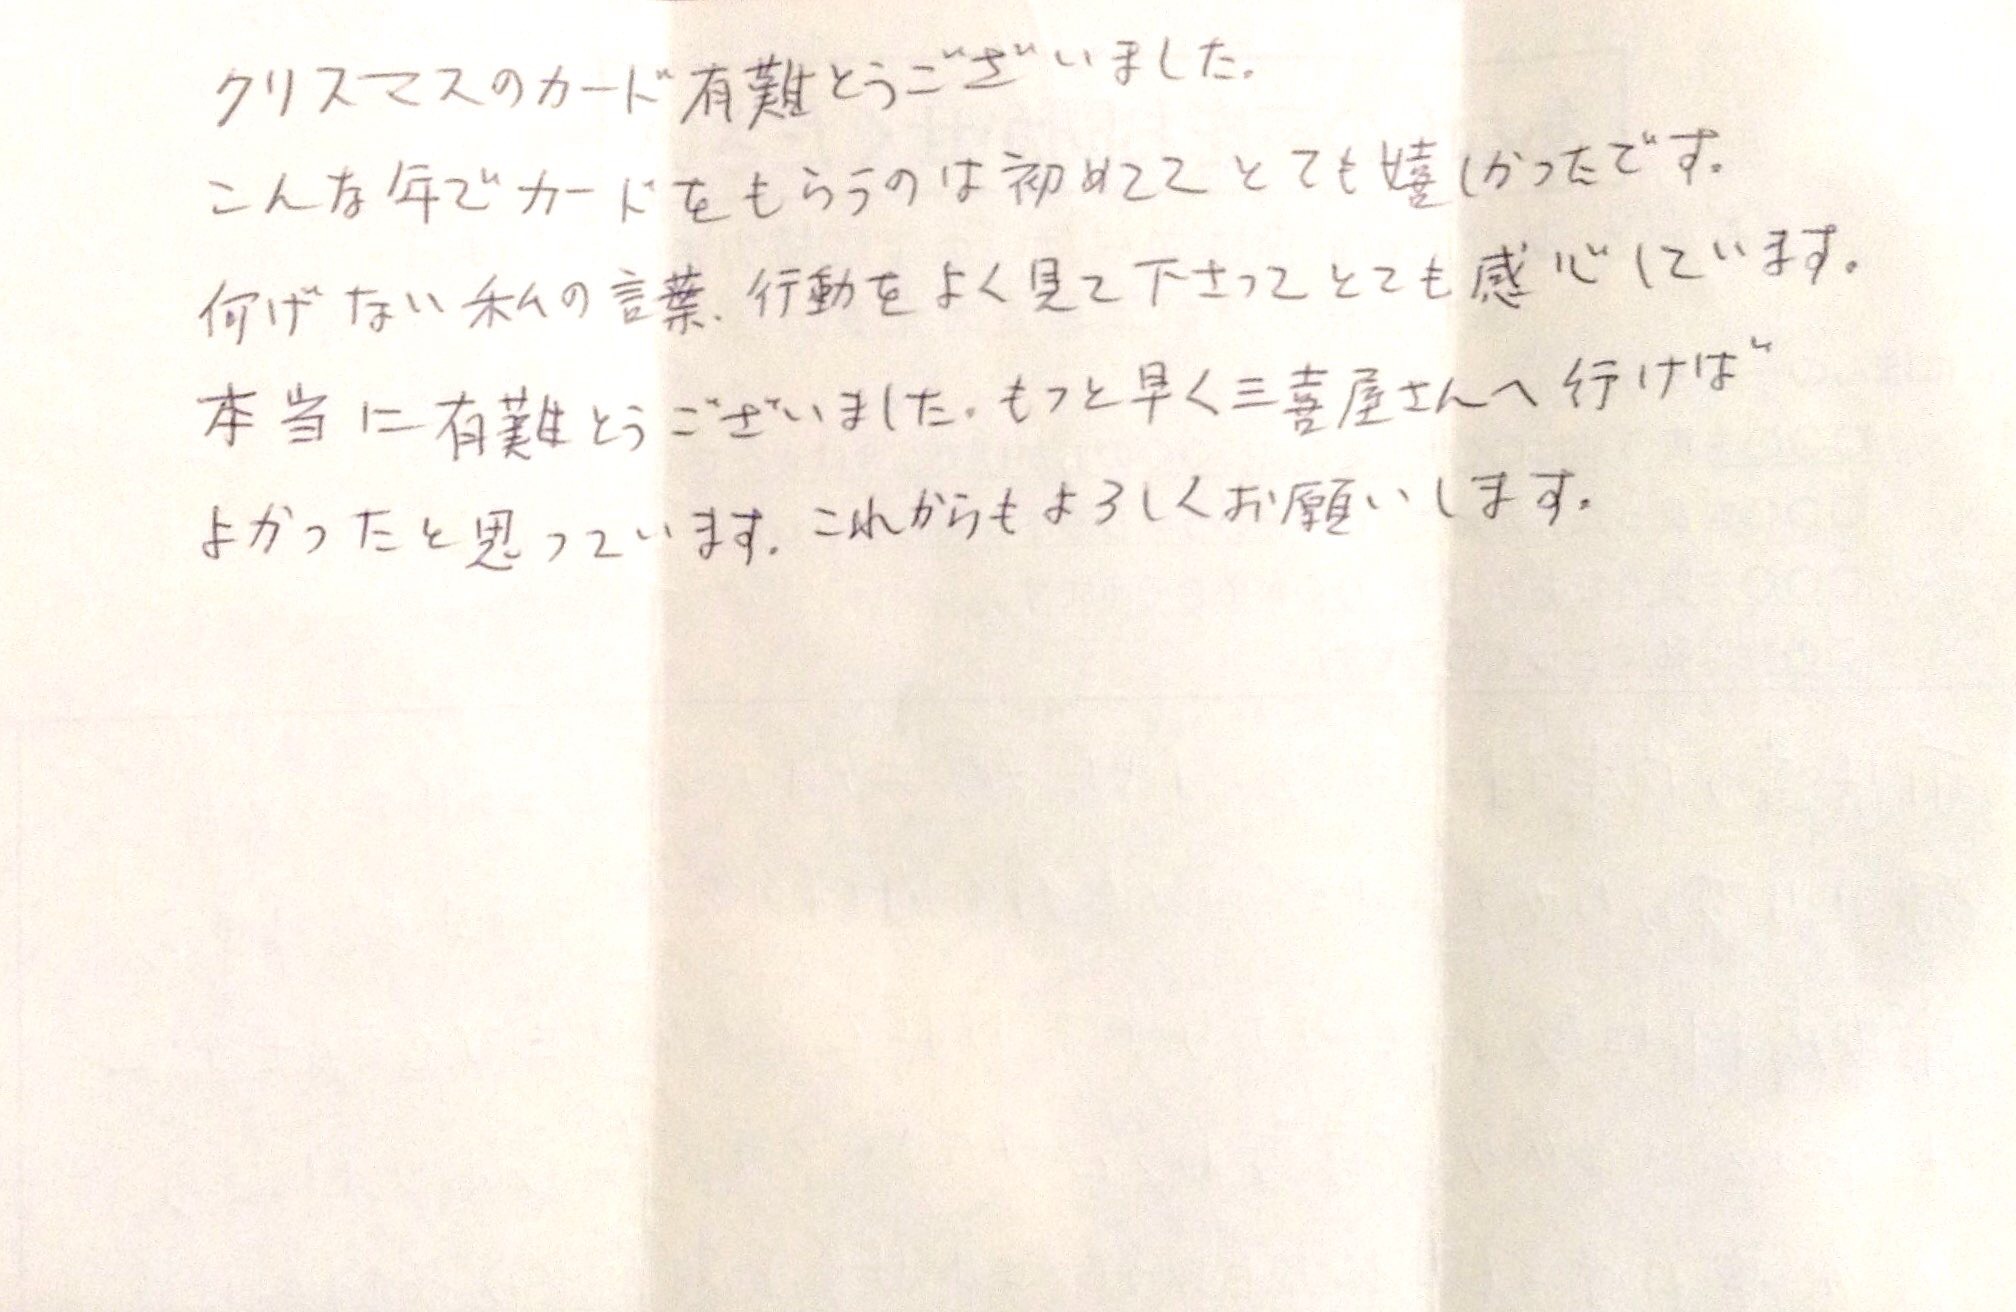 クリスマスのカード有難とうございました。
こんな年でカードをもらうのは初めてでとても嬉しかったです。
何げない私の言葉、行動をよく見て下さってとても感心しています。
本当に有難とうございました。もっと早く三喜屋さんへ行けば
よかったと思っています。これからもよろしくお願いします。